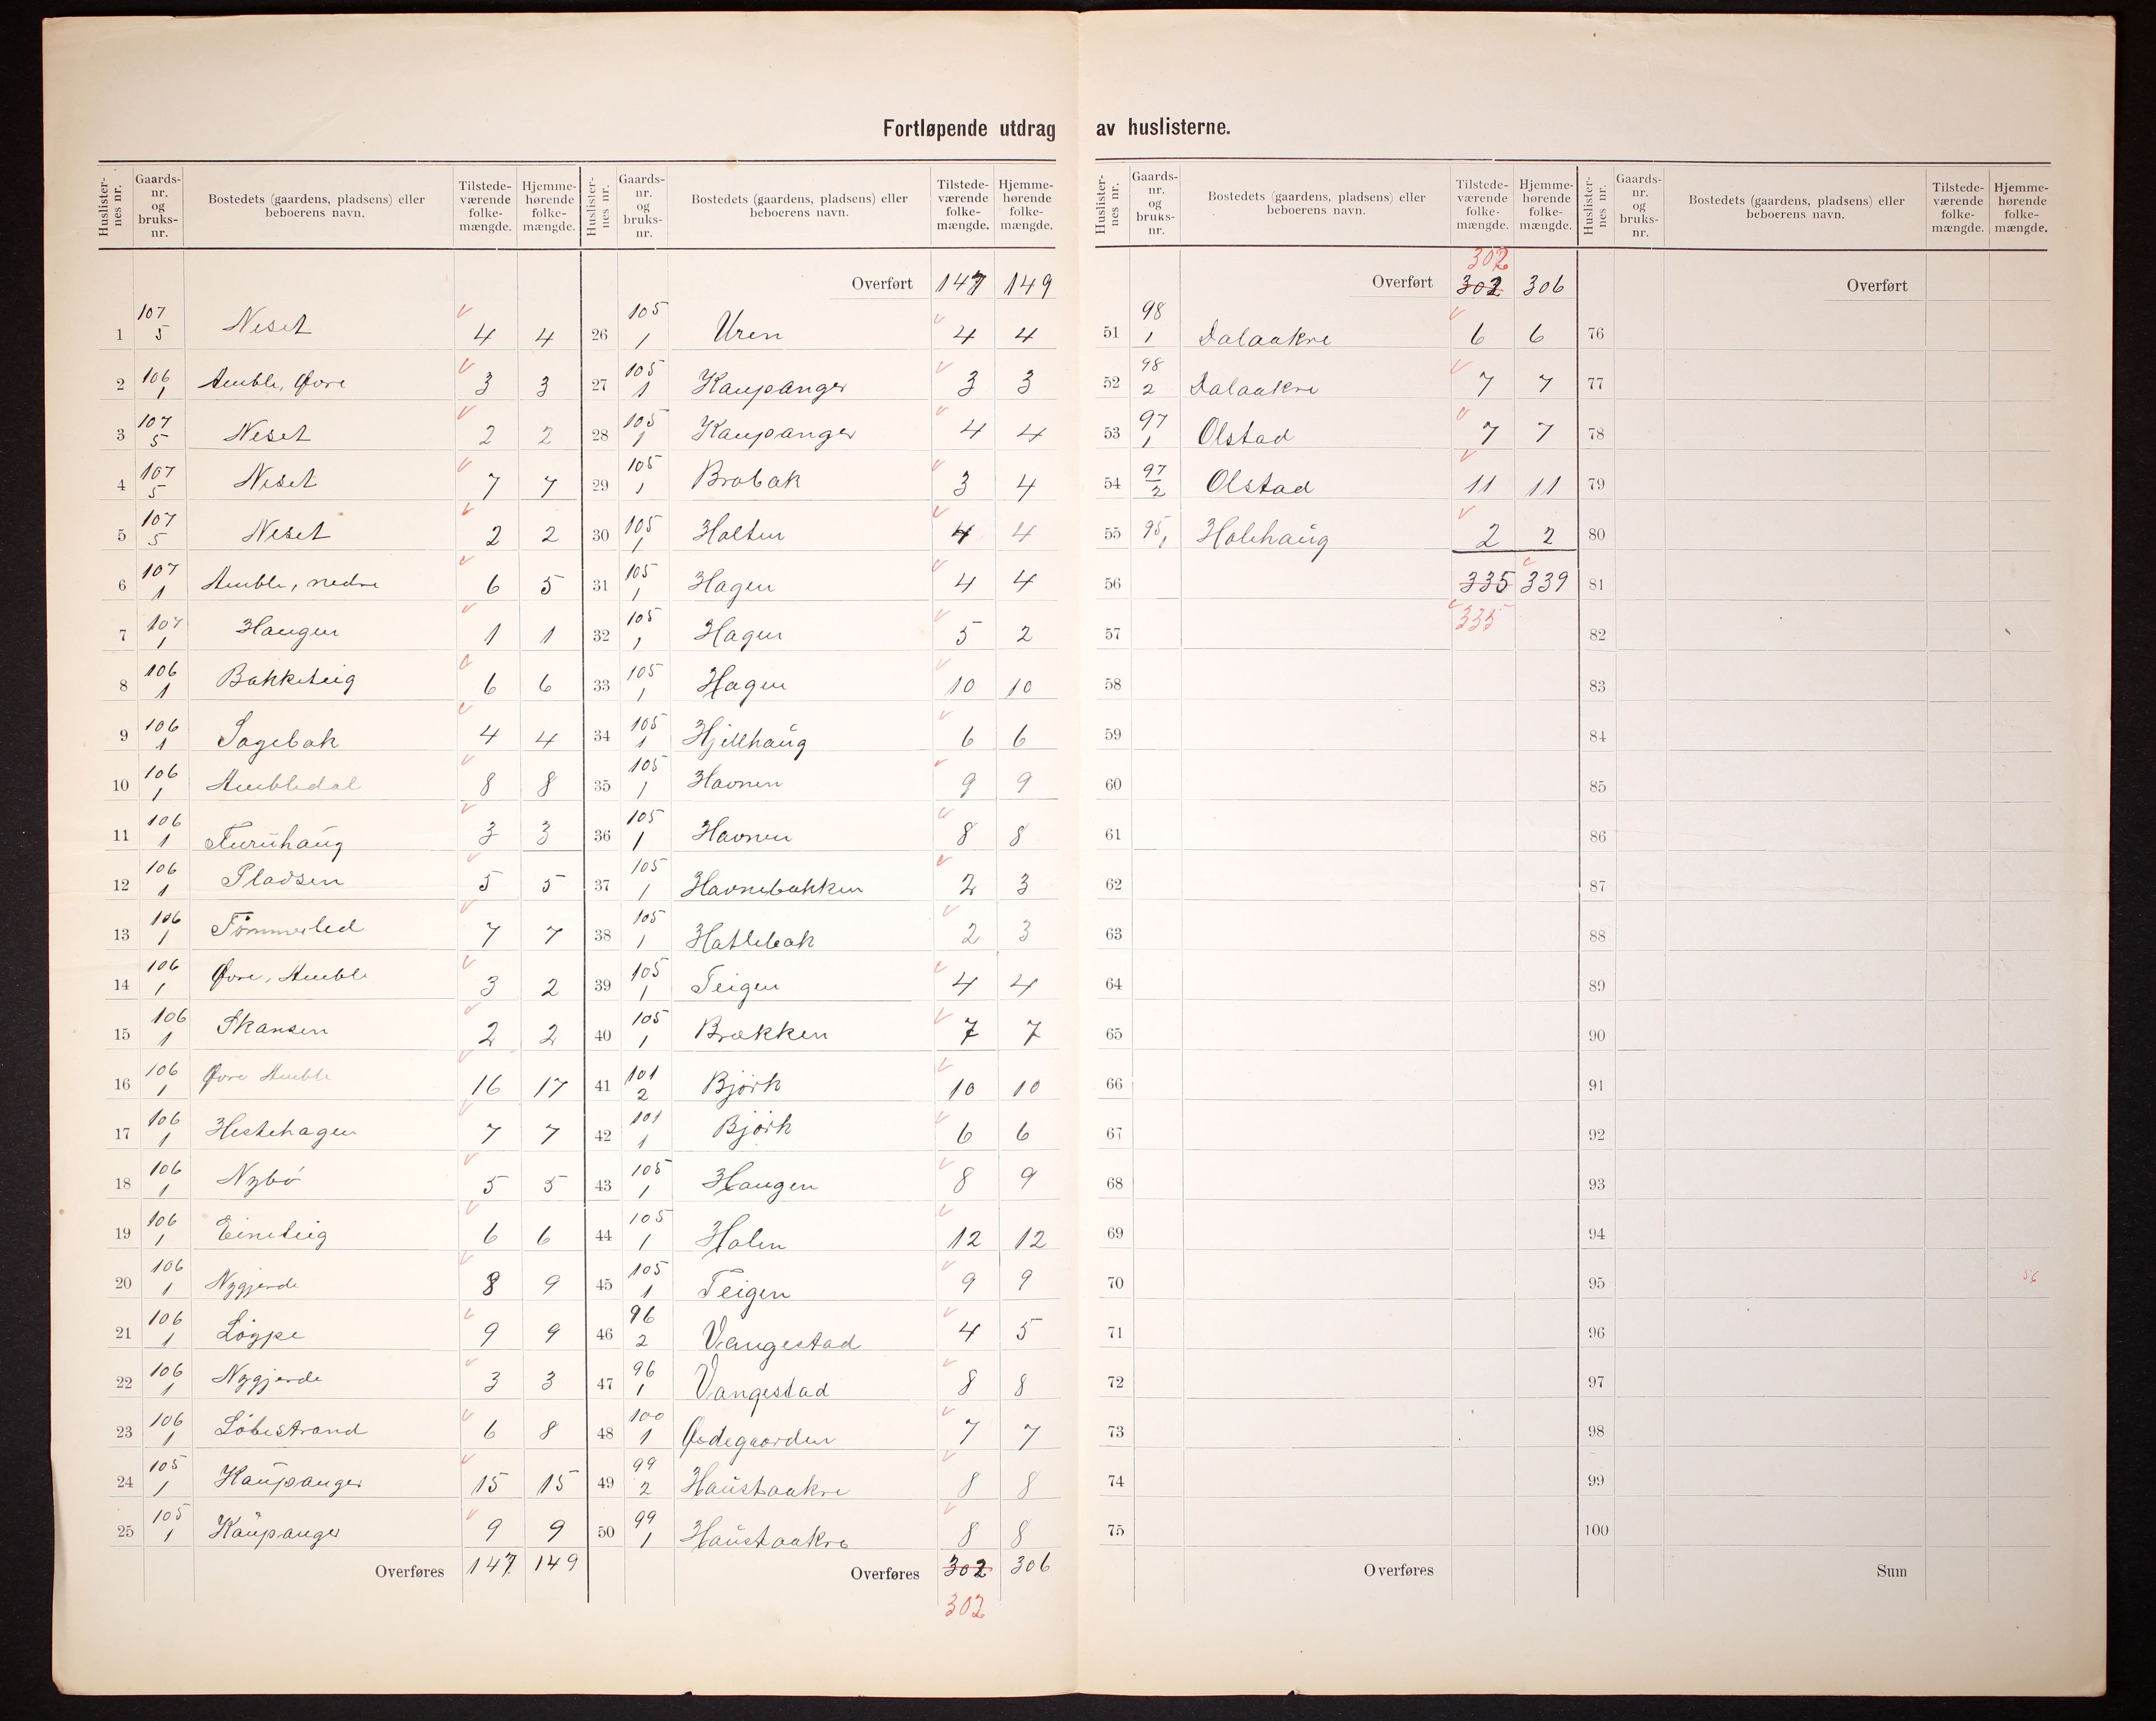 Fortløpende utdrag av huslisterne.
Huslister-nes nr. | Gaards-nr. og bruks-nr. | Bostedets (gaardens, pladsens) eller beboerens navn. | Tilstede-værende folke-mængde. | Hjemme-hørende folke-mængde.
1 107/5 Neset 4 4
2 106/1 Amble, Øvre 3 3
3 107/5 Neset 2 2
4 107/5 Neset 7 7
5 107/5 Neset 2 2
6 107/1 Amble, nedre 6 5
7 107/1 Haugen 1 1
8 106/1 Bakketeig 6 6
9 106/1 Sagebak 4 4
10 106/1 Ambledal 8 8
11 106/1 Furuhaug 3 3
12 106/1 Pladsen 5 5
13 106/1 Tømmerled 7 7
14 106/1 Øvre, Amble 3 2
15 106/1 Skansen 2 2
16 106/1 Øvre Amble 16 17
17 106/1 Hestehagen 7 7
18 106/1 Nybø 5 5
19 106/1 Eineteig 6 6
20 106/1 Nygjerde 8 9
21 106/1 Løype 9 9
22 106/1 Nygjerde 3 3
23 106/1 Løbestrand 6 8
24 105/1 Kaupanger 15 15
25 105/1 Kaupanger 9 9
Overføres 147 149
Huslister-nes nr. | Gaards-nr. og bruks-nr. | Bostedets (gaardens, pladsens) eller beboerens navn. | Tilstede-værende folke-mængde. | Hjemme-hørende folke-mængde.
Overført 147 149
26 105/1 Uren 4 4
27 105/1 Kaupanger 3 3
28 105/1 Kaupanger 4 4
29 105/1 Brobak 3 4
30 105/1 Holten 4 4
31 105/1 Hagen 4 4
32 105/1 Hagen 5 2
33 105/1 Hagen 10 10
34 105/1 Hjellhaug 6 6
35 105/1 Havnen 9 9
36 105/1 Havnen 8 8
37 105/1 Havnebakken 2 3
38 105/1 Hatlebak 2 3
39 105/1 Teigen 4 4
40 105/1 Brækken 7 7
41 101/2 Bjørk 10 10
42 101/1 Bjørk 6 6
43 105/1 Haugen 8 9
44 105/1 Holen 12 12
45 105/1 Teigen 9 9
46 96/2 Vangestad 4 5
47 96/1 Vangestad 8 8
48 100/1 Ødegaarden 7 7
49 99/2 Haustaakre 8 8
50 99/1 Haustaakre 8 8
Overføres 302 306
302
Huslister-nes nr. | Gaards-nr. og bruks-nr. | Bostedets (gaardens, pladsens) eller beboerens navn. | Tilstede-værende folke-mængde. | Hjemme-hørende folke-mængde.
302
Overført 302 306
51 98/1 Dalaakre 6 6
52 98/2 Dalaakre 7 7
53 97/1 Olstad 7 7
54 97/2 Olstad 11 11
55 95/1 Holehaug 2 2
56 335 339
57 335
58
59
60
61
62
63
64
65
66
67
68
69
70
71
72
73
74
75
Overføres
Huslister-nes nr. | Gaards-nr. og bruks-nr. | Bostedets (gaardens, pladsens) eller beboerens navn. | Tilstede-værende folke-mængde. | Hjemme-hørende folke-mængde.
Overført
76
77
78
79
80
81
82
83
84
85
86
87
88
89
90
91
92
93
94
95 56
96
97
98
99
100
Sum